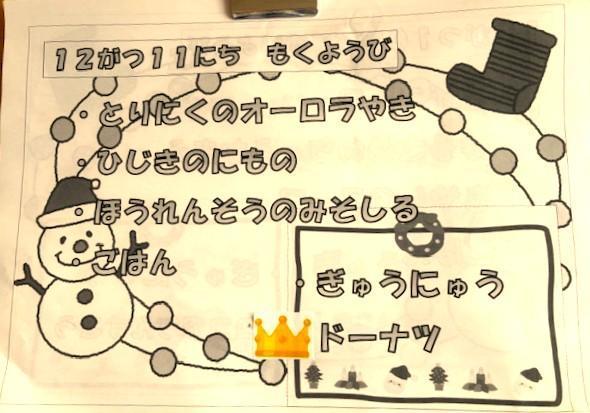 12がつ11にち　もくようび
・とりにくのオーロラやき
・ひじきのにもの
・ほうれんそうのみそしる
・ごはん
・ぎゅうにゅう
ドーナツ